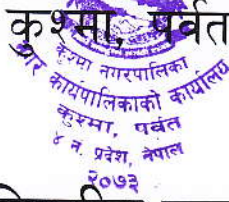 कुश्मा, पर्वत
कुश्मा नगरपालिका
नगर कार्यपालिकाको कार्यालय
कुश्मा, पर्वत
४ न. प्रदेश, नेपाल
२०७३